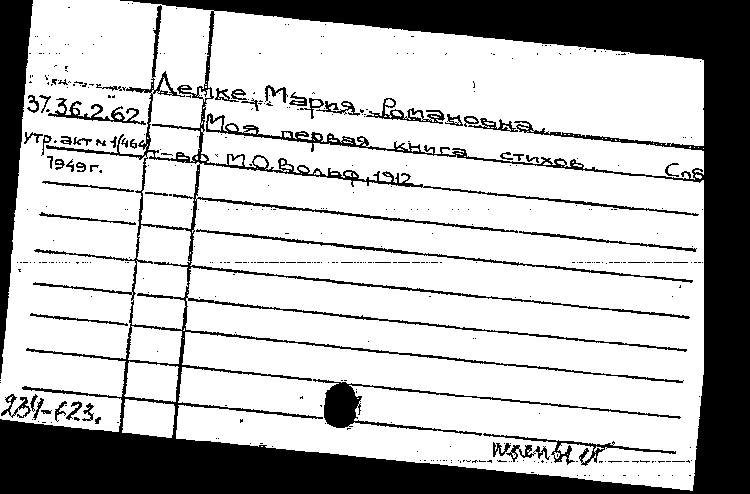 Лемке, Мария Романовна.
37.36.2.62. Моя первая книга стихов. Спб
утр. акт N 1(464) т-во М.О. Вольф, 1912.
1949 г.